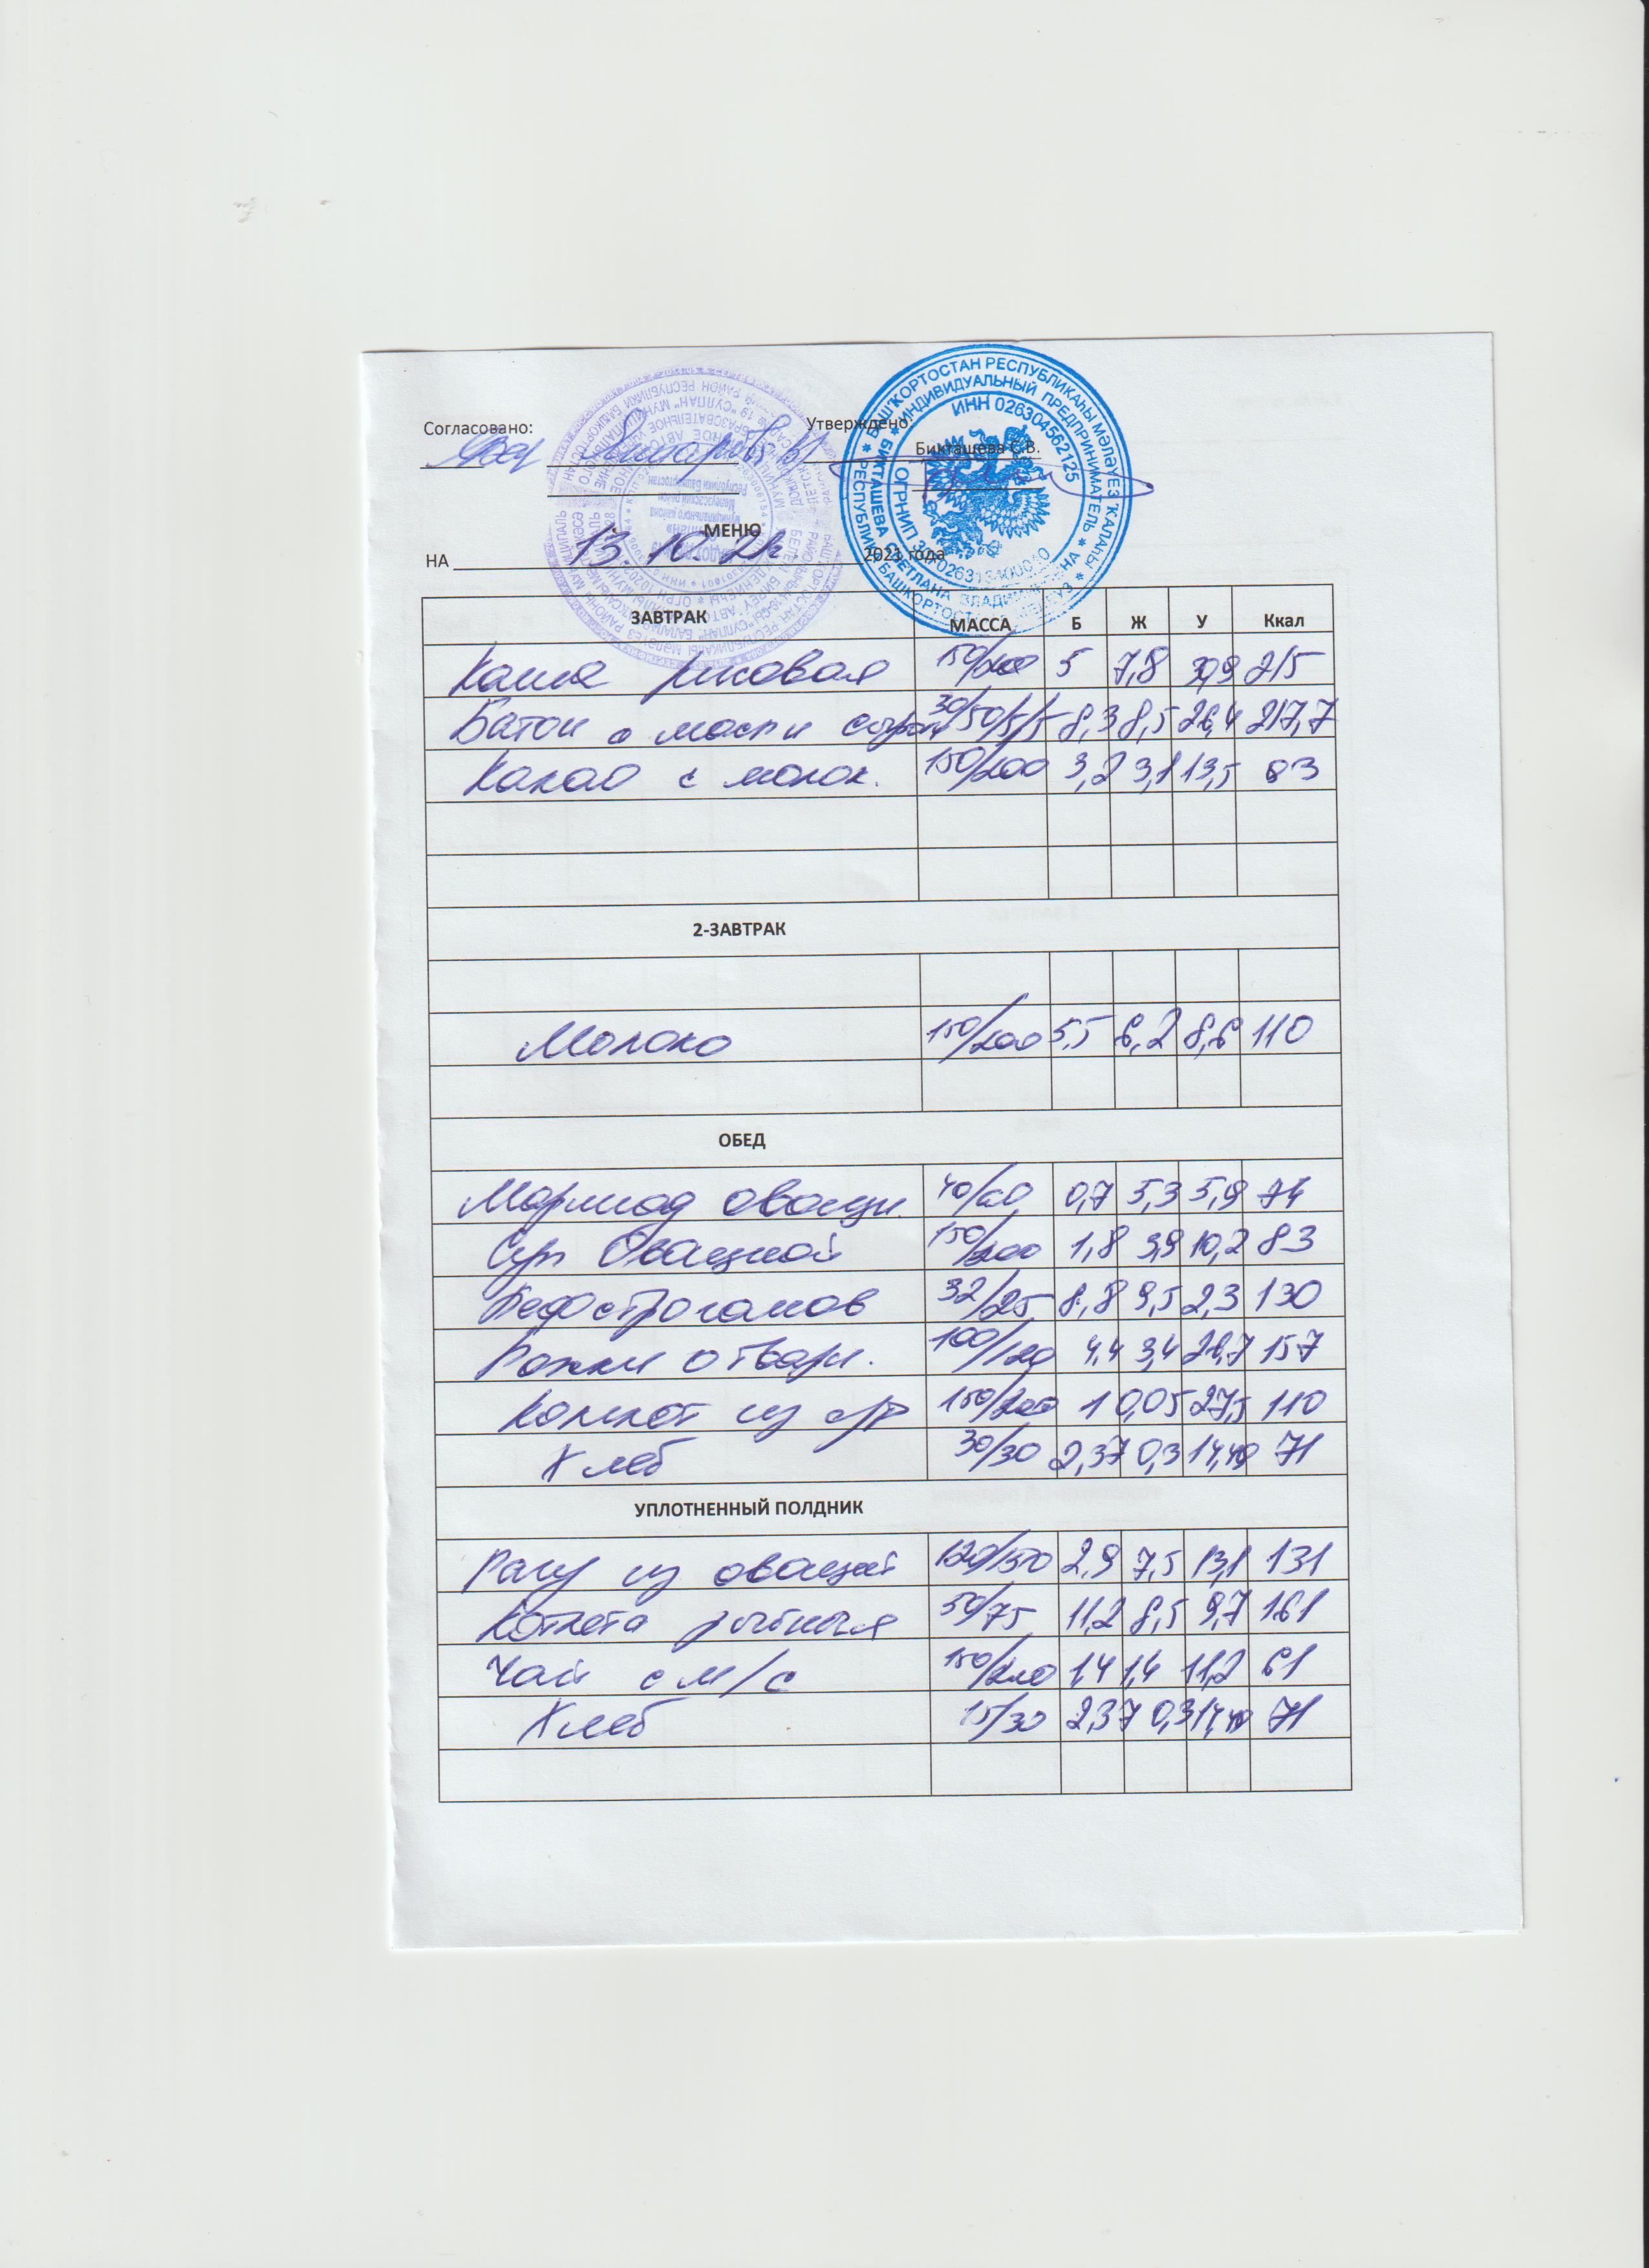 Согласовано: Утверждено:
Бикташева С.В.
БАШҠОРТОСТАН РЕСПУБЛИКАҺЫ МӘЛӘҮЕЗ ҠАЛАҺЫ
ИНДИВИДУАЛЬНЫЙ ПРЕДПРИНИМАТЕЛЬ
ИНН 026304562125
БИКТАШЕВА СВЕТЛАНА
МЕНЮ
НА 13.10.21г 2021 года
ЗАВТРАК МАССА Б Ж У Ккал
Каша рисовая 150/200 5 7,8 215
Батон с масл и сыром 30/50/5/5 8,3 8,5 26,4 217,7
Какао с молок. 150/200 3,2 3,1 13,5 83
2-ЗАВТРАК
Молоко 150/200 5,5 6,2 8,6 110
ОБЕД
Мармад овощи. 40/60 0,7 5,3 5,9 74
Суп Овощной 150/200 1,8 3,9 10,2 83
Бефстроганов 32/25 8,8 9,5 2,3 130
Рожки отвари. 100/120 4,4 3,4 157
Компот из с/ф 150/200 1 0,05 27,5 110
Хлеб 30/30 2,37 0,3 14,49 71
УПЛОТНЕННЫЙ ПОЛДНИК
Рагу из овощей 120/150 2,9 7,5 13,1 131
Котлета рыбная 50/75 11,2 8,5 9,7 161
Чай с м/с 150/200 1,4 1,4 11,2 61
Хлеб 15/30 2,37 0,3 14,49 71